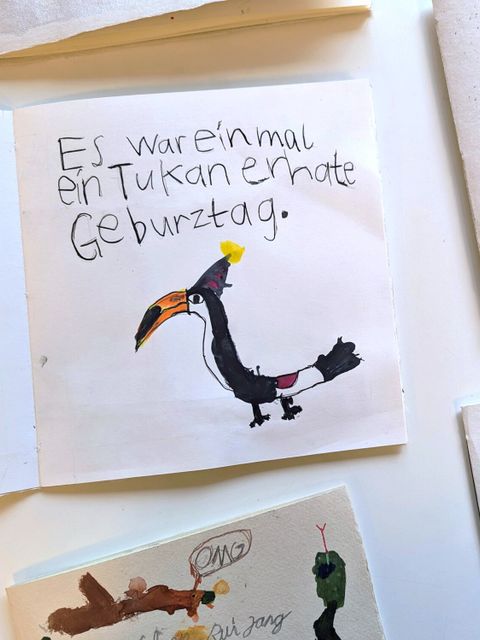 Es war einmal
ein Tukan erhate
Geburztag.
OMG